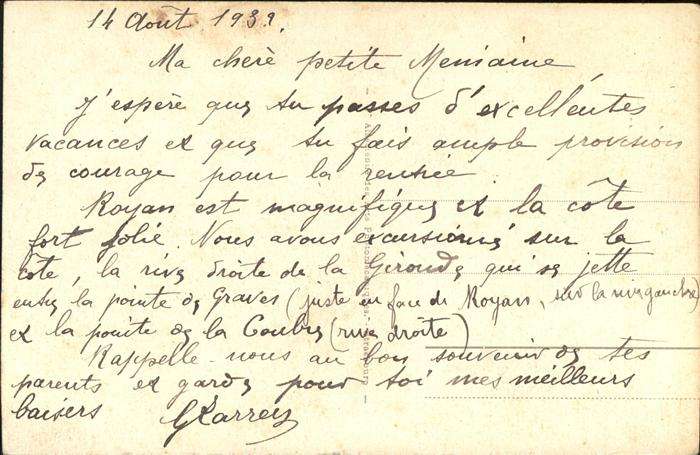 14 Août 1939.
Ma chère petite
J'espère que tu passes d'excellentes
vacances et que tu fais ample provision
de courage pour la rentrée.
Royan est magnifique et la côte
fort jolie. Nous avons excursionné sur la
côte, la rive droite de la Gironde qui se jette
entre la pointe de Graves (juste en face de Royan, sur la rive gauche)
et la pointe de la Coubre (rive droite)
Rappelle-nous au bon souvenir de tes
parents et garde pour toi mes meilleurs
baisers